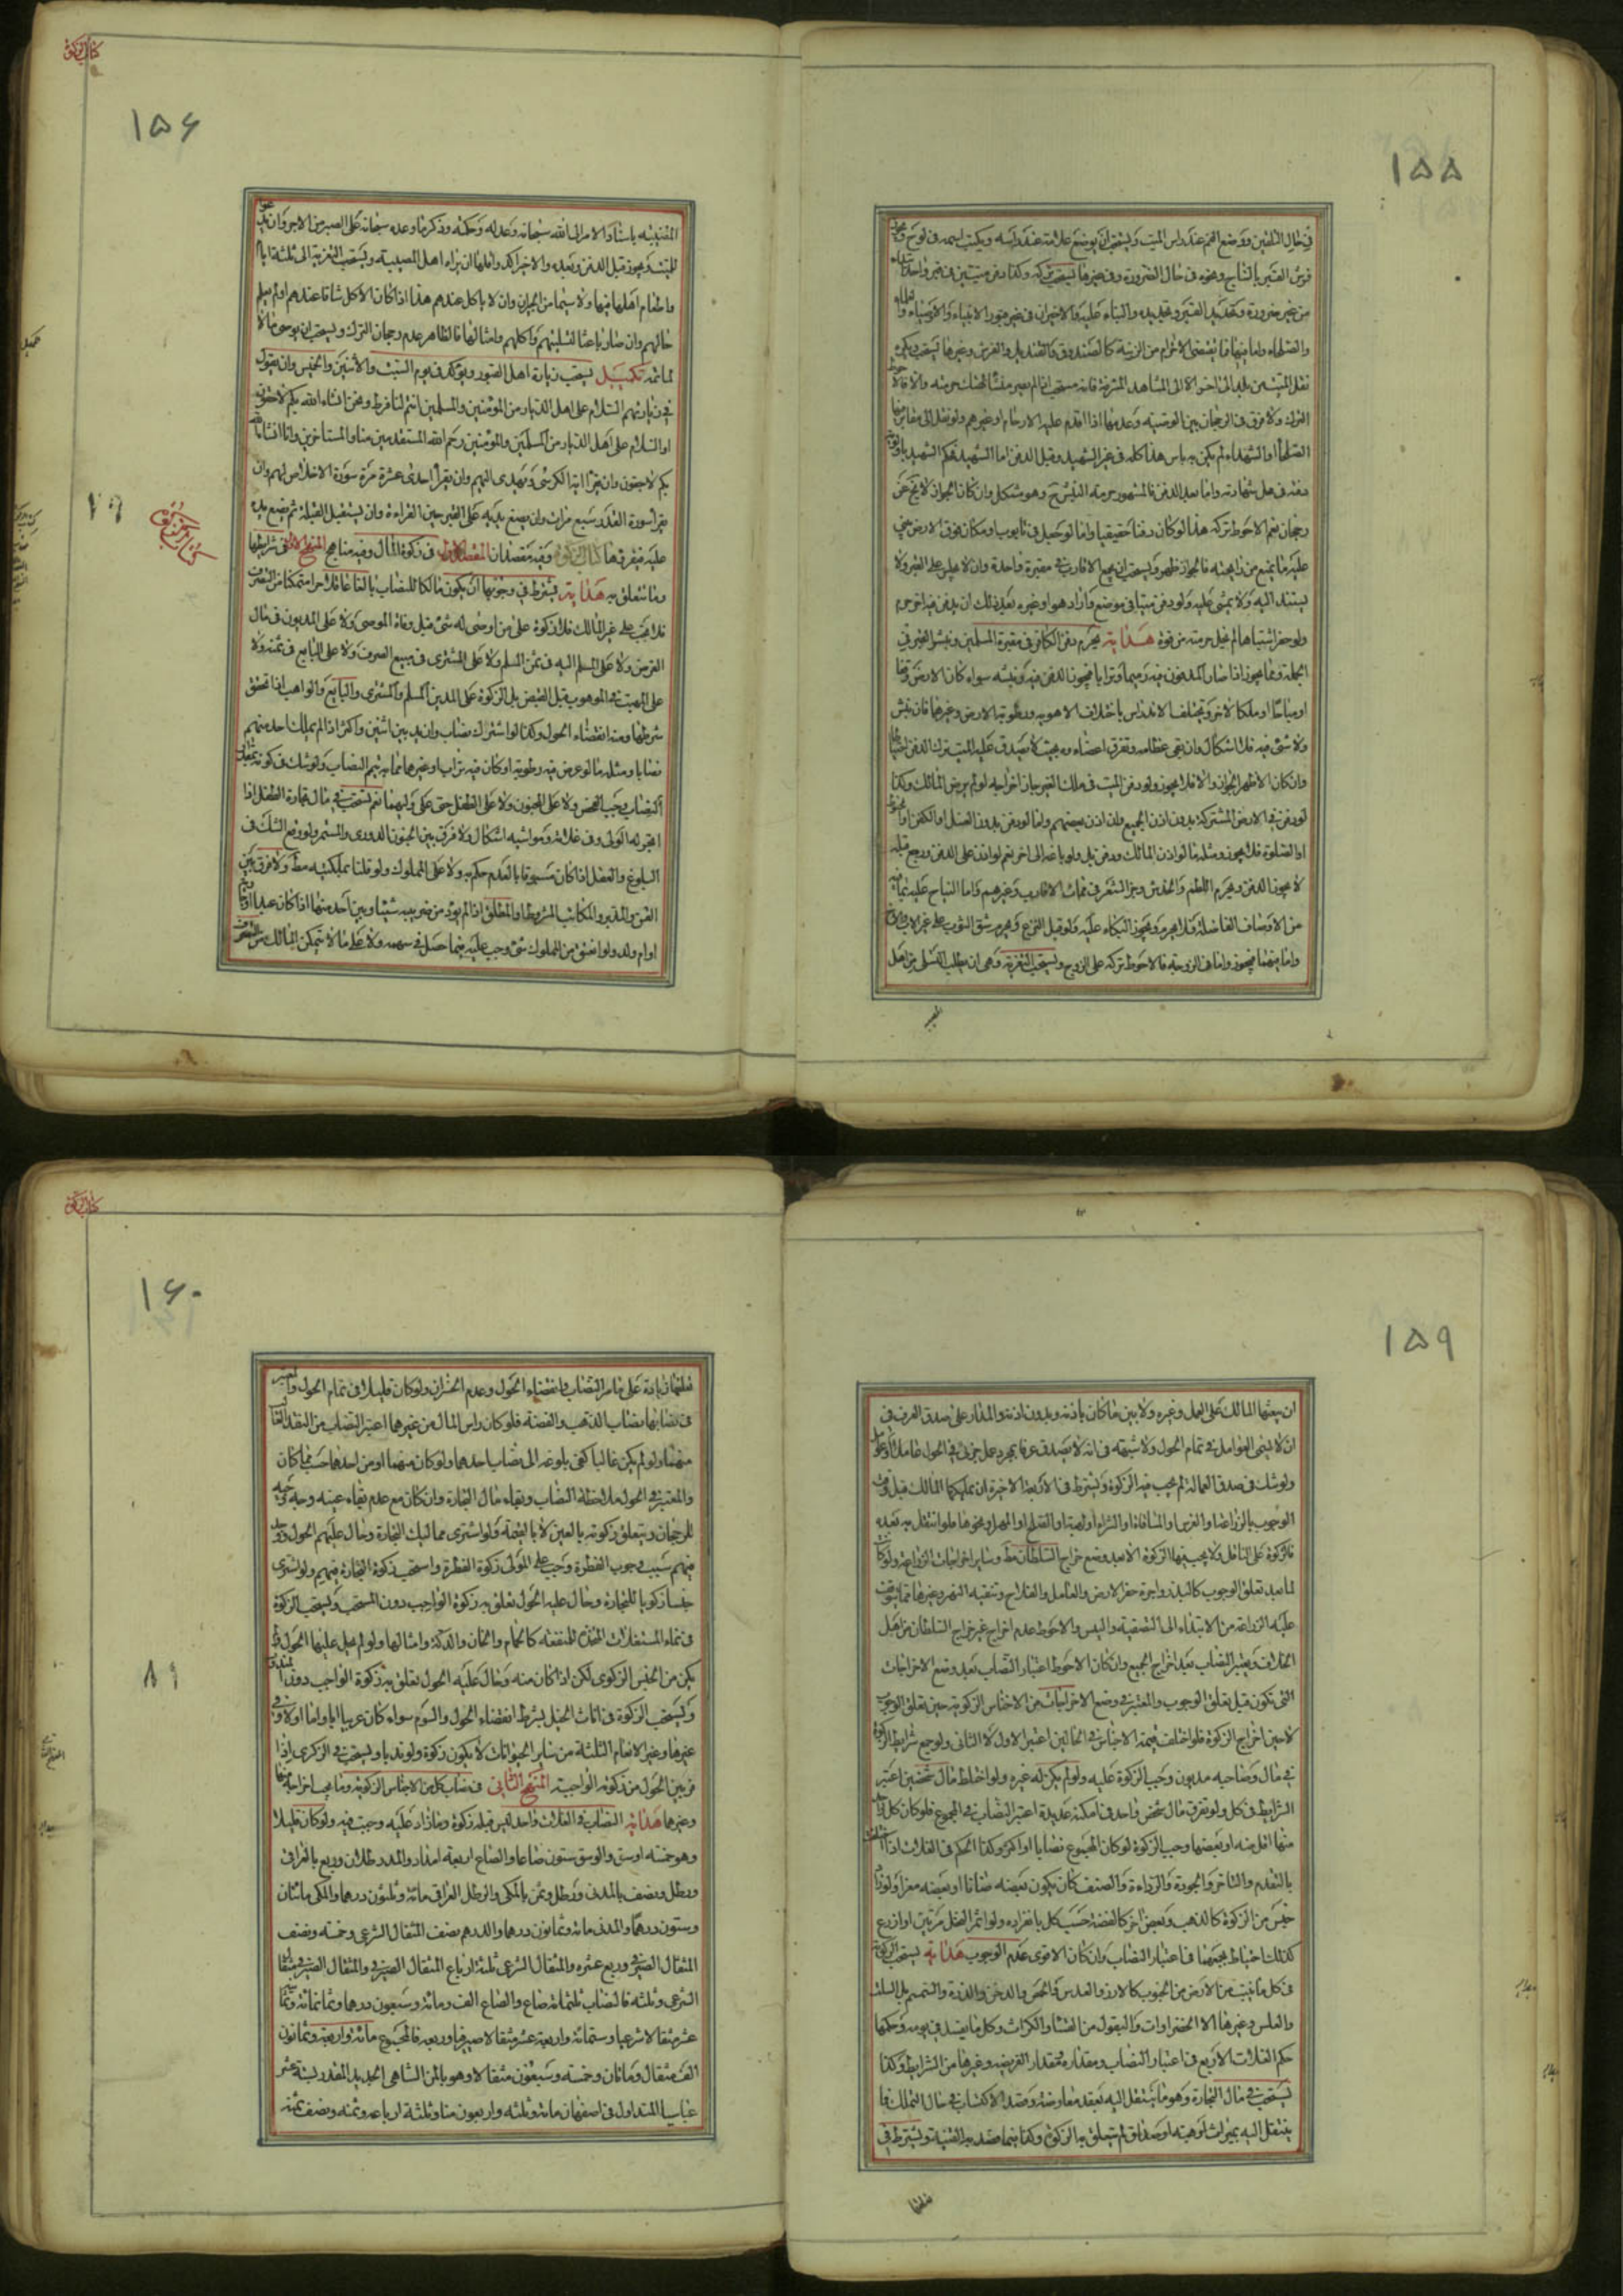 ١٥٥
في حال التلقين ووضع الفم عند راس الميت ويستحب ان يوضع علامة عند راسه ويكتب اسمه في لوح
فرش القبر بالساج ونحوه في حال الضرورة وفي غيرها يستحب تركه وكذا دفن ميتين في قبر واحد
من غير ضرورة وتجديد القبر والبناء عليه والاخيران في غير قبور الانبياء والاوصياء
والصلحاء واما فيها مما يقتضى الاحترام من الزينة كالصندوق والقنديل والفرش وغيرها
نقل الميت من بلد الى اخر الا الى المشاهد المشرفة فانه مستحب اذا لم يصر منشأ لهتك حرمته والا فالا
الترك ولا فرق في الرجحان بين الوصية وعدمها اذا اقدم عليه الارحام او غيرهم ولو نقل الى مقابر
الصلحاء او الشهداء لم يكن به باس هذا كله في غير الشهيد وقبل الدفن اما الشهيد فحكم الشهيد
دفنه في محل شهادته واما بعد الدفن فالمشهور حرمة النبش وهو مشكل وان كان الجواز لا يخ عن
رجحان نعم الاحوط تركه هذا لو كان دفنا حقيقيا واما لو جعل في تابوت او مكان فوق الارض
عليه ما يمنع من رايحته فالجواز ظهر ويستحب ان يجمع الاقارب في مقبرة واحدة وان لا يجلس على القبر ولا
يستند اليه ولا يمشى عليه ولو دفن ميتا في موضع واراد هو او غيره بعد ذلك ان يدفن فيه اخر حرم
ولو حفر اشتباها لم يخل حرمته من قوة هداية يحرم دفن الكافر في مقبرة المسلمين ونبش القبر في
الجملة ومما يجوز اذا صار المدفون فيه رميما وترابا فيجوز الدفن فيه ونبشه سواء كان الارض وقفا
او مباحا او ملكا لاخر ويختلف الاندراس باختلاف الاهوية ورطوبة الارض وغيرها فان نبش
ولا شئ فيه فلا اشكال وان بقى عظامه وتفرق اعضاءه بحيث لا يصدق عليه الميت ترك الدفن
وان كان الاظهر الجواز والا فلا يجوز ولو دفن الميت في ملك الغير جاز اخراجه لو لم يرض المالك وكذا
لو دفن في الارض المشتركة بدون اذن الجميع وان اذن بعضهم واما لو دفن بدون الغسل او الكفن
او الصلوة فلا يجوز ومثله ما لو اذن المالك ودفن بل ولو باعه الى اخر نعم لو اذن على الدفن ورجع قبله
لا يجوز الدفن ويحرم اللطم والخدش وجز الشعر في ممات الاقارب وغيرهم واما النياح عليه
من الاوصاف الفاضلة فلا يحرم ويجوز البكاء عليه ولو قبل النزع ويحرم شق الثوب على غير الاب والاخ
واما فيهما فيجوز واما في الزوجة فالاحوط تركه على الزوج ويستحب التعزية وهى ان يطلب التسلى من اهل
كتاب الزكوة
١٥۶
المصيبة باسناد الامر الى الله سبحانه وعدله وحكمته وذكر ما وعده سبحانه على الصبر من الاجر وان
للميت ويجوز قبل الدفن وبعده والاخير اكد واقلها ان يراه اهل المصيبة ويستحب التعزية الى ثلثة ايام
واطعام اهلها فيها ولا سيما من الجيران وان لا ياكل عندهم هذا اذا كان الاكل شاقا عندهم او لم يعلم
حالهم وان صار باعثا لتسليتهم واكلهم وامثالها فالظاهر عدم رجحان الترك ويستحب ان يوصى
لماتمه تكميل يستحب زيارة اهل القبور ويؤكد في يوم السبت والاثنين والخميس وان يقول
في زيارتهم السلام على اهل الديار من المؤمنين والمسلمين انتم لنا فرط ونحن انشاء الله بكم لاحقون
او السلام على اهل الديار من المسلمين والمؤمنين رحم الله المستقدمين منا والمستاخرين وانا انشاء الله
بكم لاحقون وان يقرا اية الكرسى ويهدى اليهم وان يقرأ احدى عشرة مرة سورة الاخلاص لهم وان
يقرا سورة القدر سبع مرات وان يضع يديه على القبر حين القراءة وان يستقبل القبلة ثم يضع يده
عليه فيقرؤها كتاب الزكوة وفيه مقصدان المقصد الاول في زكوة المال وفيه مناهج المنهج الاول في شرايطها
وما يتعلق به هداية يشترط في وجوبها ان يكون مالكا للنصاب بالغا عاقلا حرا متمكنا من التصرف
فلا يجب على غير المالك فلا زكوة على من اوصى له شئ قبل وفاة الموصى ولا على المديون في مال
القرض ولا على المسلم اليه في ثمن السلم ولا على المشترى في مبيع الصرف ولا على البايع في ثمنه ولا
على المتهب في الموهوب قبل القبض بل الزكوة على المدين المسلم والمشترى والبايع والواهب اذا تحقق
شرطها ومنه انقضاء الحول وكذا لو اشترك نصاب وازيد بين اثنين واكثر اذا لم يملك احد منهم
نصابا ومثله ما لو عرض فيه رطوبة او كان فيه تراب او غيرهما مما به يتم النصاب ولو شك في كونه
النصاب وجب الفحص ولا على المجنون ولا على الطفل حتى على وليهما نعم يستحب في مال تجارة الطفل اذا
اتجر له الولى وفي غلاته ومواشيه اشكال ولا فرق بين الجنون الدورى والمستمر ولو وقع الشك في
البلوغ والعقل اذا كان مسبوقا بالعدم حكم به ولا على المملوك ولو قلنا بملكيته مط ولا فرق بين
القن والمدبر والمكاتب المشروط والمطلق اذا لم يؤد من ضريبه شيئا وبين احد منها اذا كان عبدا
او ام ولد ولو اعتق من المملوك شئ وجب عليه فيما حصل في سهمه ولا على ما لا يتمكن المالك من التصرف
٧٩
كتاب الزكوة
١٥٩
ان يعينها المالك على العمل وغيره ولا بين ما كان باذنه وبدون اذنه والمدار على صدق العرف في
ان لا يسمى العوامل في تمام الحول ولا شبهة في انه لا يصدق عرفا بمجرد عمل جزئى في الحول عاملا
ولو شك في صدق العمالة لم يجب فيه الزكوة ويشترط في الاربعة الاخيرة ان يملكها المالك قبل وقت
الوجوب بالزراعة او الغرس او المساقاة او الشراء او الهبة او الصلح او المهر او نحوها فلو انتقل به بعده
فالزكوة على الناقل ولا يجب فيها الزكوة الا بعد وضع خراج السلطان مط وساير اخراجات الزراعة ولو كان
لما بعد تعلق الوجوب كالبذر واجرة حفر الارض والعامل والفلاح وتنقية النهر وغيرها مما يتوقف
عليه الزراعة من الابتداء الى التصفية واليبس والاحوط عدم اخراج غير خراج السلطان من قبل
الخارات ويعتبر النصاب بعد اخراج الجميع وان كان الاحوط اعتبار النصاب بعد وضع الاخراجات
التى تكون قبل تعلق الوجوب والمعتبر في وضع الاخراجات من الاجناس الزكوية حين تعلق الوجوب
لا حين اخراج الزكوة فلو اختلف قيمة الاجناس في الحالين اعتبر الاول لا الثانى ولو جمع شرايط الزكوة
في مال وصاحبه مديون وجب الزكوة عليه ولو لم يكن له غيره ولو اختلط مال شخصين اعتبر
الشرايط في كل ولو تفرق مال شخص واحد في امكنة عديدة اعتبر النصاب في المجموع فلو كان كل واحد
منها اقل منه او بعضها وجب الزكوة لو كان المجموع نصابا او اكثر وكذا الحكم في الغلات اذا
بالتقدم والتاخر والجودة والرداءة والصنف كان يكون بعضه ضانا او بعضه معزا ولو
جنس من الزكوة كالذهب وبعض اخر كالفضة حسب كل بانفراده ولو اثمر النخل مرتين او ازرع
كذلك احتياط بجمعهما في اعتبار النصاب وان كان الاقوى عدم الوجوب هداية يستحب الزكوة
في كل ما ينبت من الارض من الحبوب كالارز والعدس والحمص والدخن والذرة والسمسم بل السلت
والعلس وغيرها الا الخضراوات والبقول من القثاء والكراث وكل ما يفسد في يومه وحكمها
حكم الغلات الاربع في اعتبار النصاب ومقداره ومقدار الفريضة وغيرها من الشرايط وكذا
يستحب في مال التجارة وهو ما ينتقل اليه بعقد معاوضة وقصد الاكتساب في حال التملك فما
ينتقل اليه بميراث او هبة او صداق لم يتعلق به الزكوة وكذا فيما قصد به القنية ويشترط في
كتاب الزكوة
١۶٠
على ما مر النصاب وانقضاء الحول وعدم الخسران ولو كان قليلا في تمام الحول والمعتبر
في نصابها نصاب الذهب والفضة فلو كان راس المال من غيرهما اعتبر النصاب من النقد الغالب
منهما ولو لم يكن غالبا كفى بلوغه الى نصاب احدهما ولو كان منهما او من احدهما حسب بما كان
والمعتبر في الحول ملاحظة النصاب وبقاء مال التجارة وان كان مع عدم بقاء عينه وجه
للرجحان ويتعلق زكوته بالعين لا بالقيمة ولو اشترى مماليك التجارة وحال عليهم الحول
منهم سبب وجوب الفطرة وجب على المولى زكوة الفطرة واستحب زكوة التجارة فيهم ولو اشترى
جنسا زكويا للتجارة وحال عليه الحول تعلق به زكوة الواجب دون المستحب ويستحب الزكوة
في نماء المستغلات المتخذة للمنفعة كالحمام والخان والدكة وامثالها ولو لم يحل عليها الحول
يكن من الجنس الزكوى لكن اذا كان منه وحال عليه الحول تعلق به زكوة الواجب دون
ويستحب الزكوة في اناث الخيل بشرط انقضاء الحول والسوم سواء كان عربيا ام لا واما
غيرها وغير الانعام الثلثة من ساير الحيوانات لا يكون زكوة ولو ندبا ويستحب في الزكوى اذا
فر بين الحول من زكوته الواجبة المنهج الثانى في نصاب كل من الاجناس الزكوية وما يجب اخراجه
وغيرها هداية النصاب في الغلات واحد ليس قبله زكوة وما زاد عليه وجبت فيه ولو كان قليلا
وهو خمسة اوسق والوسق ستون صاعا والصاع اربعة امداد والمد رطلان وربع بالعراقى
ورطل ونصف بالمدنى ورطل وثمن بالمكى والرطل العراقى مائة وثلثون درهما والمكى مائتان
وستون درهما والمدنى مائة وثمانون درهما والدرهم نصف المثقال الشرعى وخمسه ونصف
المثقال الصيرفى وربع عشره والمثقال الشرعى ثلثة ارباع المثقال الصيرفى والمثقال الصيرفى
الشرعى وثلثه فالنصاب ثلثمائة صاع والصاع الف ومائة وسبعون درهما وثمانمائة
عشر مثقالا شرعيا وستمائة واربعة عشر مثقالا صيرفيا وربعه فالمجموع مائة واربعة وثمانون
الف مثقال ومائتان وخمسة وسبعون مثقالا وهو بالمن الشاهى الجديد المقدر بستة عشر
عباسيا المتداول في اصفهان مائة وثلثة واربعون منا وثلثة ارباعه وثمنه ونصف ثمنه
٨١